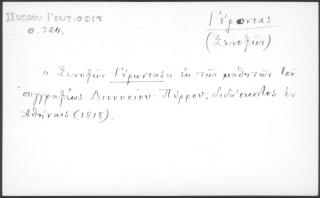 Πύρρου Γεωγραφία
σ. 324.
Γέροντας
(Ξενοφῶν)
"Ξενοφῶν Γέροντας ἐκ τῶν μαθητῶν τοῦ
συγγραφέως Διονυσίου Πύρρου, διδάσκοντος ἐν
Ἀθήναις (1818).